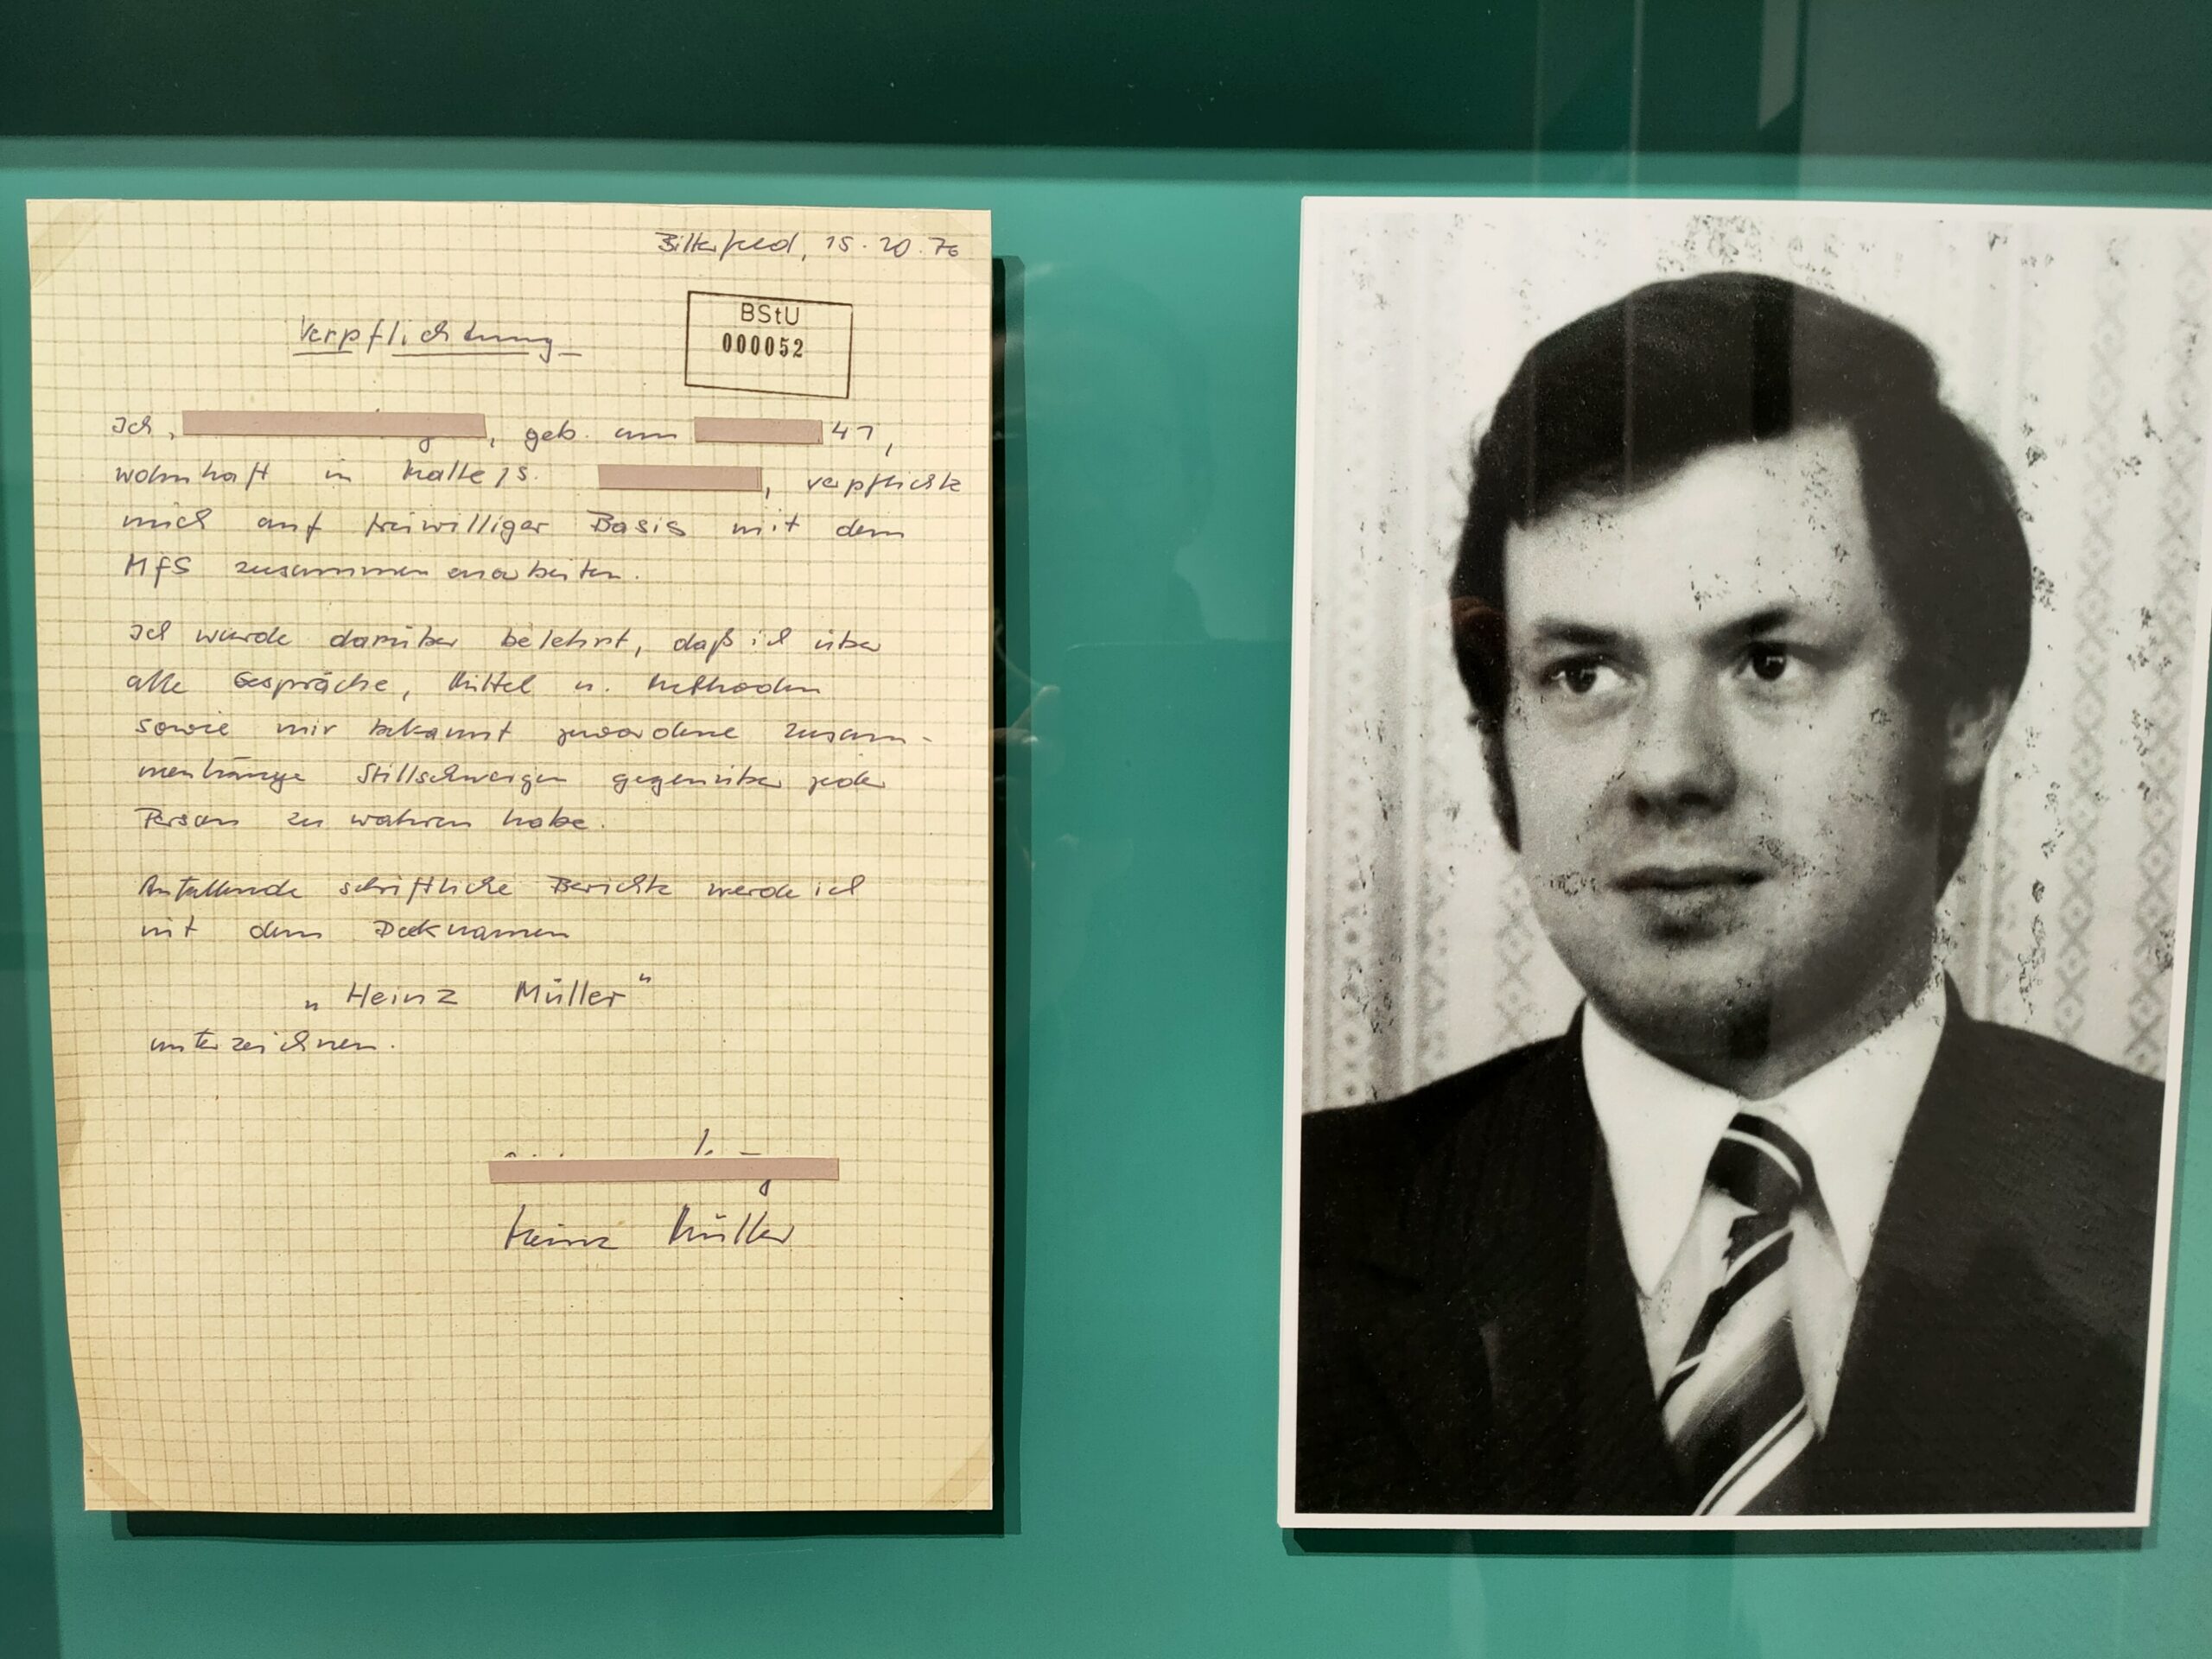 Bitterfeld, 15.10.76
BStU
000052
Verpflichtung
Ich, , geb. am 47,
wohnhaft in Halle/S. , verpflichte
mich auf freiwilliger Basis mit dem
MfS zusammenzuarbeiten.
Ich wurde darüber belehrt, daß ich über
alle Gespräche, Mittel u. Methoden
sowie mir bekannt gewordene Zusam-
menhänge Stillschweigen gegenüber jeder
Person zu wahren habe.
Anfallende schriftliche Berichte werde ich
mit dem Decknamen
„Heinz Müller"
unterzeichnen.
Heinz Müller